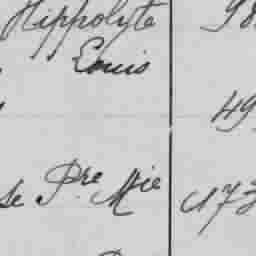 Hippolyte 98
Louis
49
se Pre Mie 173